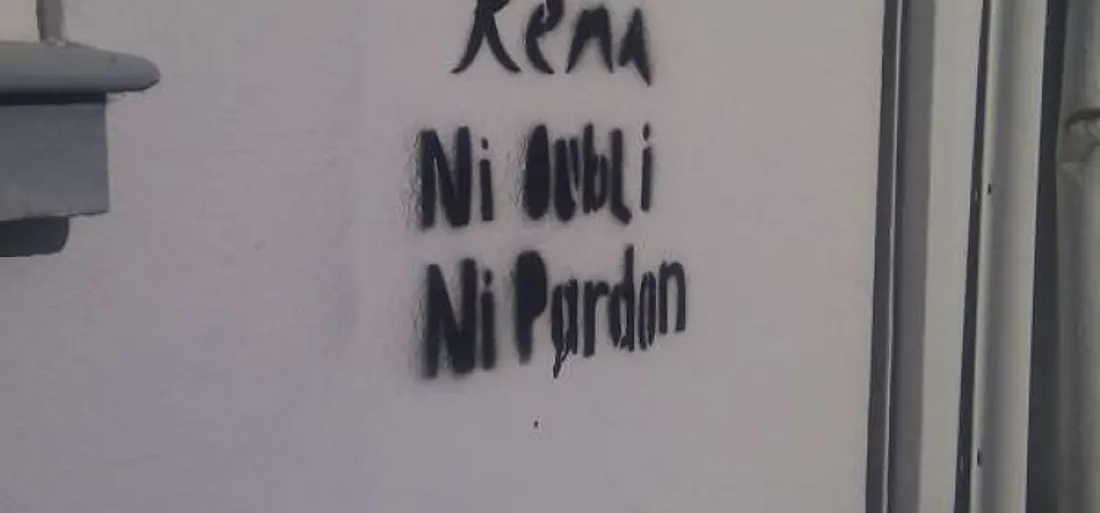 Ni Oubli
Ni Pardon